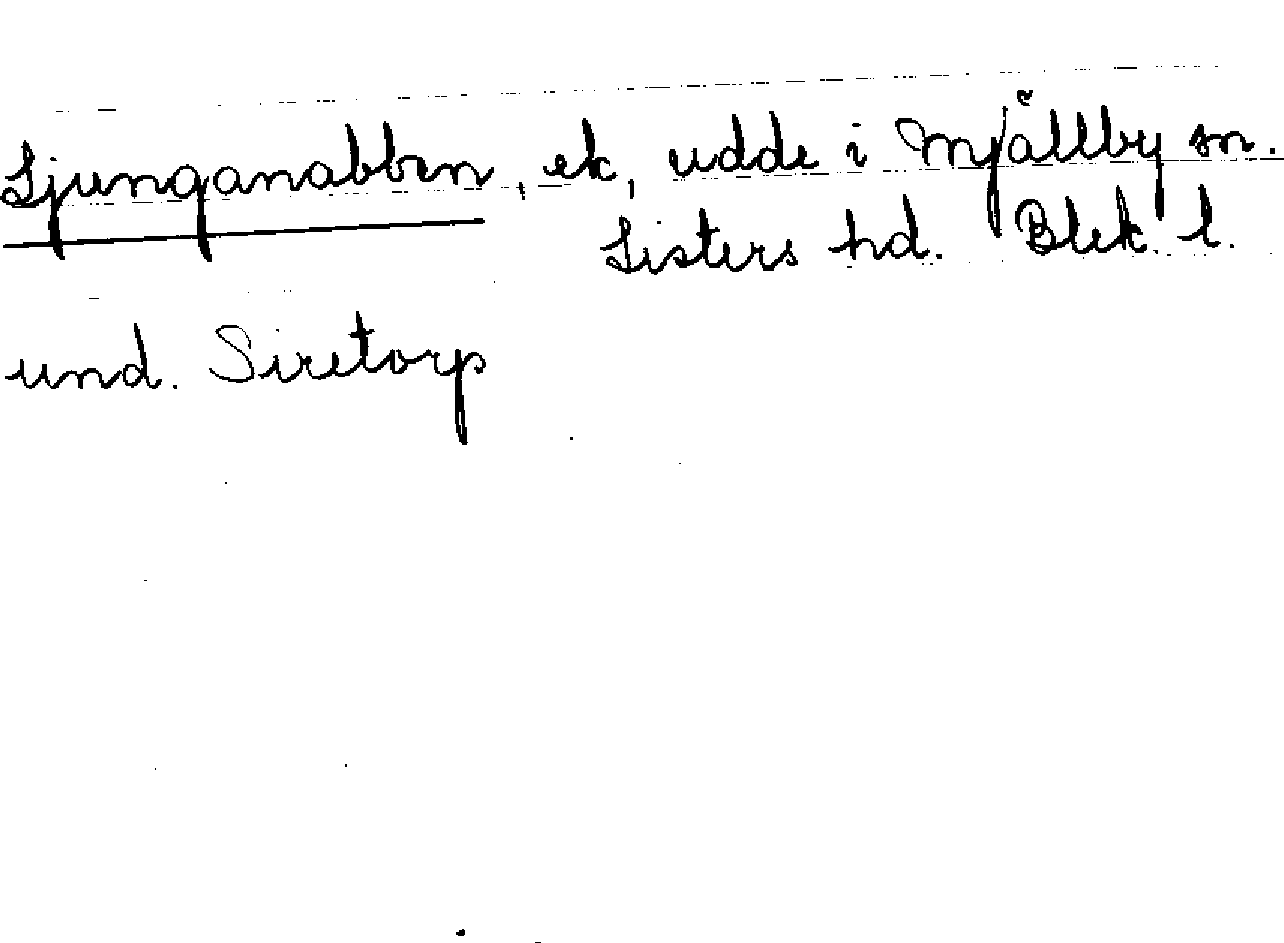 Ljunganabben, ek, udde i Mjällby sn.
Listers hd. Blek. l.
und. Siretorp